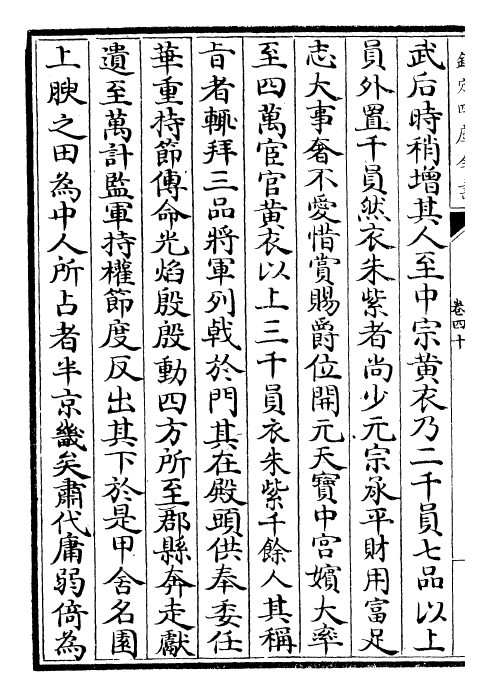 欽定四庫全書
卷四十
武后時稍增其人至中宗黄衣乃二千員七品以上
員外置千員然衣朱紫者尚少元宗承平財用富足
志大事奢不愛惜賞賜爵位開元天寶中宫嬪大率
至四萬宦官黄衣以上三千員衣朱紫千餘人其稱
旨者輒拜三品將軍列戟於門其在殿頭供奉委任
華重持節傳命光焰殷殷動四方所至郡縣奔走獻
遺至萬計監軍持權節度反出其下於是甲舍名園
上腴之田為中人所占者半京畿矣肅代庸弱倚為